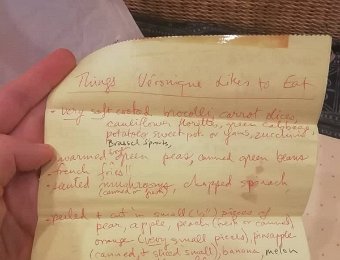 Things Véronique Likes to Eat
- very soft cooked broccoli, carrot slices,
cauliflower florettes, green cabbage,
potato or sweet pot. or yams, zucchini
Brussel sprouts,
- warmed green peas, canned green beans
- french fries!!
- sautéed mushrooms, chopped spinach
(canned or fresh)
- peeled + cut in small (½") pieces of
pear, apple, peach (fresh or canned),
orange (very small pieces), pineapple
(canned, + sliced small), banana melon